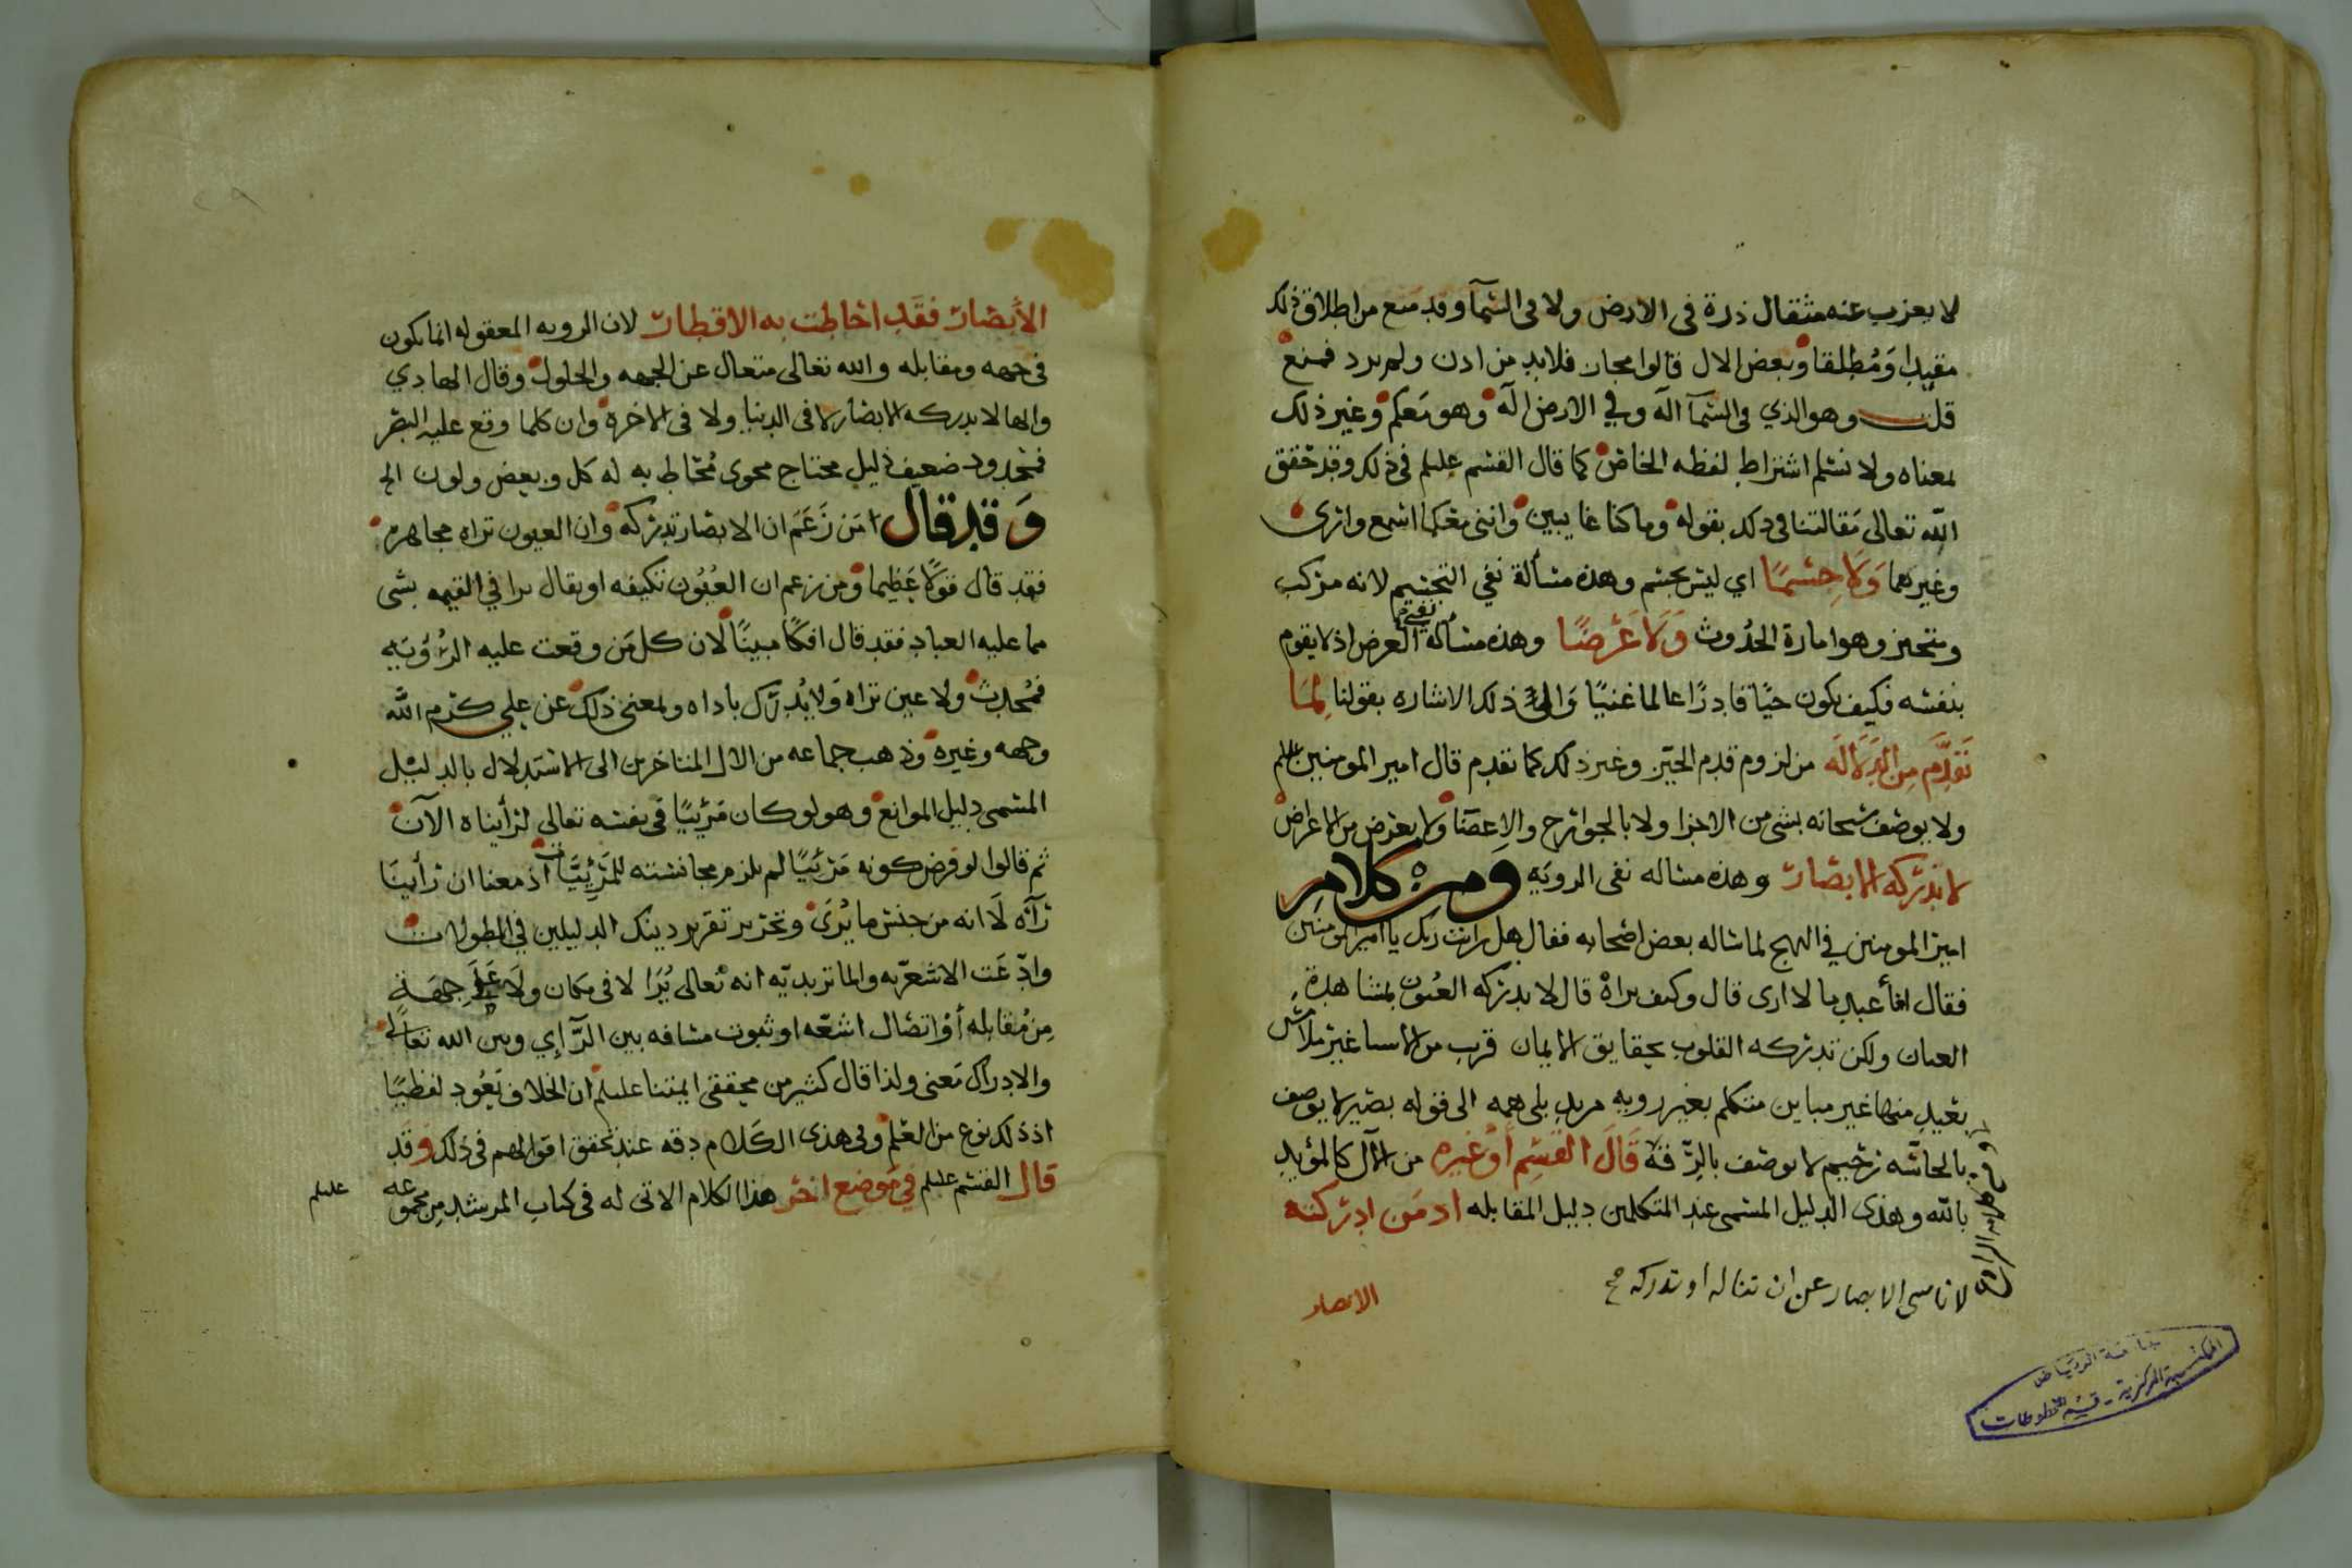 لا يعزب عنه مثقال ذرة في الارض ولا في السمآ وقد منع من اطلاق ذلك
مقيدا ومُطلقا وبعض الال قالوا مجاز فلابد من اذن ولم يرد فمنع
قلت وهو الذي في السمآ اله وفي الارض اله وهو معكم وغير ذلك
لمعناه ولا نسلم اشتراط لفظه الخاص كما قال القسم عليلم في ذلك وقد حقق
الله تعالى مقالتنا في ذلك بقوله وما كنا غايبين وانني معكما اسمع وارى
وغيرهما وَلاَ جِسْمًا اي ليس بجسم وهذه مسألة نفي التجسيم لانه مركب
ومتحيز وهو امارة الحدُوث وَلاَ عَرَضًا وهذه مسأله نفي العرض اذ لا يقوم
بنفسه فكيف يكون حيًا قادرًا عالما غنيًا وَالى ذلك الاشاره بقولنا لِمَا
تَقدَّم مِن الدَلاَلَه من لزوم قدم الحيّز وغير ذلك كما تقدم قال امير المومنين عليلم
ولا يوصف سبحانه بشى من الاجزا ولا بالجوارح والاعضا ولا بعرض من الاعراض
لا تدركه الابصار وهذه مساله نفى الرويَه ومن كلام
امير المومنين في النهج لما ساله بعض اصحابه فقال هل رايت ربك يا امير المومنين
فقال افأعبد ما لا ارى قال وكيف تراهُ قال لا تدركه العيُون بمشاهدة
العيان ولكن تدركه القلوب بحقايق الايمان قرب من الاسيا غير ملامس
بعيد منها غير مباين متكلم بغير رويه مريد بلى همه الى قوله بصير لا يوصف
بالحاسّه رَحيم لا يوصف بالرِّقه قَالَ القَسِم أَوْ غيره من الآل كالمؤيد
بالله وهذى الدليل المسمى عند المتكلمين دليل المقابله اذ مَن ادركته
لا ناسى الابصار عن ان تناله او تدركه صح
الابصار
جامعة الرياض
المكتبة المركزية - قسم المخطوطات
الأبصَار فقَد احَاطت به الاقطار لان الرويه المعقوله انما يكون
في جهه ومقابله والله تعالى متعال عن الجهه والحلول وقال الهادي
والها لا يدركه الابصار لا في الدنيا ولا في الاخره وان كلما وقع عليه البصر
فمحدود ضعيف ذليل محتاج محوى مُحاط به له كل وبعض ولون الخ
وَقد قال امَن زَعَم ان الابصار تدركه وان العيون تراه مجاهره
فقد قال قولاً عَظِيما ومن زعم ان العُيُون تكيفه او يقال يرا في القيمه بشى
مما عليه العباد فقد قال افكًا مبينًا لان كل مَن وقعت عليه الرُوَيَه
فمُحدث ولا عين تراه وَلا يُدرك باداه ولمعنى ذلك عن علي كرم الله
وجهه وغيره وذهب جماعه من الال المتاخرين الى الاستدلال بالدليل
المسمى دليل الموانع وهو لو كان مَرْئيًا في نفسه تعالى لرأيناه الآن
ثم قالوا لو فرض كونه مَرْئيًا لم يلزم مجانسته للمَرْئيَّات اذ معنا ان رأينَا
رآه لَا انه من جنس ما يُرَى وتحرير تقرير دينك الدليلين في المطولات
وادّعَت الاشعريه والماتريديّه انه تعالى يُرَا لا في مكان ولَا عَلَى جِهَةٍ
مِن مُقابله أوْ اتصَال اشعّه او ثبوت مسافه بين الرآي وبين الله تعالى
والادراك مَعنى ولذا قال كثير من محققى ايمتنا عليلم ان الخلاف يَعُود لفظيًا
اذ ذلك نوع من العلم وفى هذى الكَلام دقه عند تحقق اقوالهم في ذلك وقد
قال القسم عليلم في مَوضع اخر هذا الكلام الاتى له في كتاب المرشد مِن مجموعه
عليلم